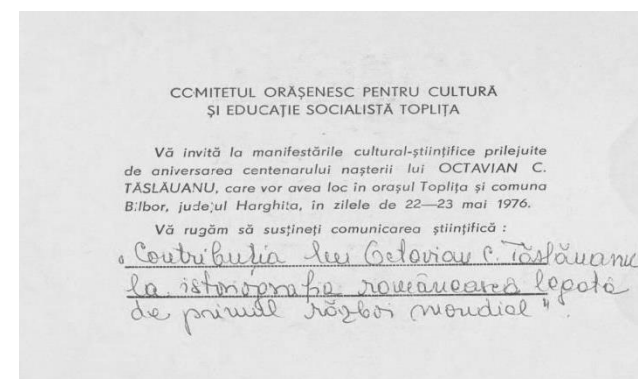 COMITETUL ORĂȘENESC PENTRU CULTURĂ
ȘI EDUCAȚIE SOCIALISTĂ TOPLIȚA
Vă invită la manifestările cultural-științifice prilejuite
de aniversarea centenarului nașterii lui OCTAVIAN C.
TĂSLĂUANU, care vor avea loc în orașul Toplița și comuna
Bilbor, județul Harghita, în zilele de 22—23 mai 1976.
Vă rugăm să susțineți comunicarea științifică :
„Contribuția lui Octavian C. Tăslăuanu
la istoriografia românească legată
de primul război mondial".